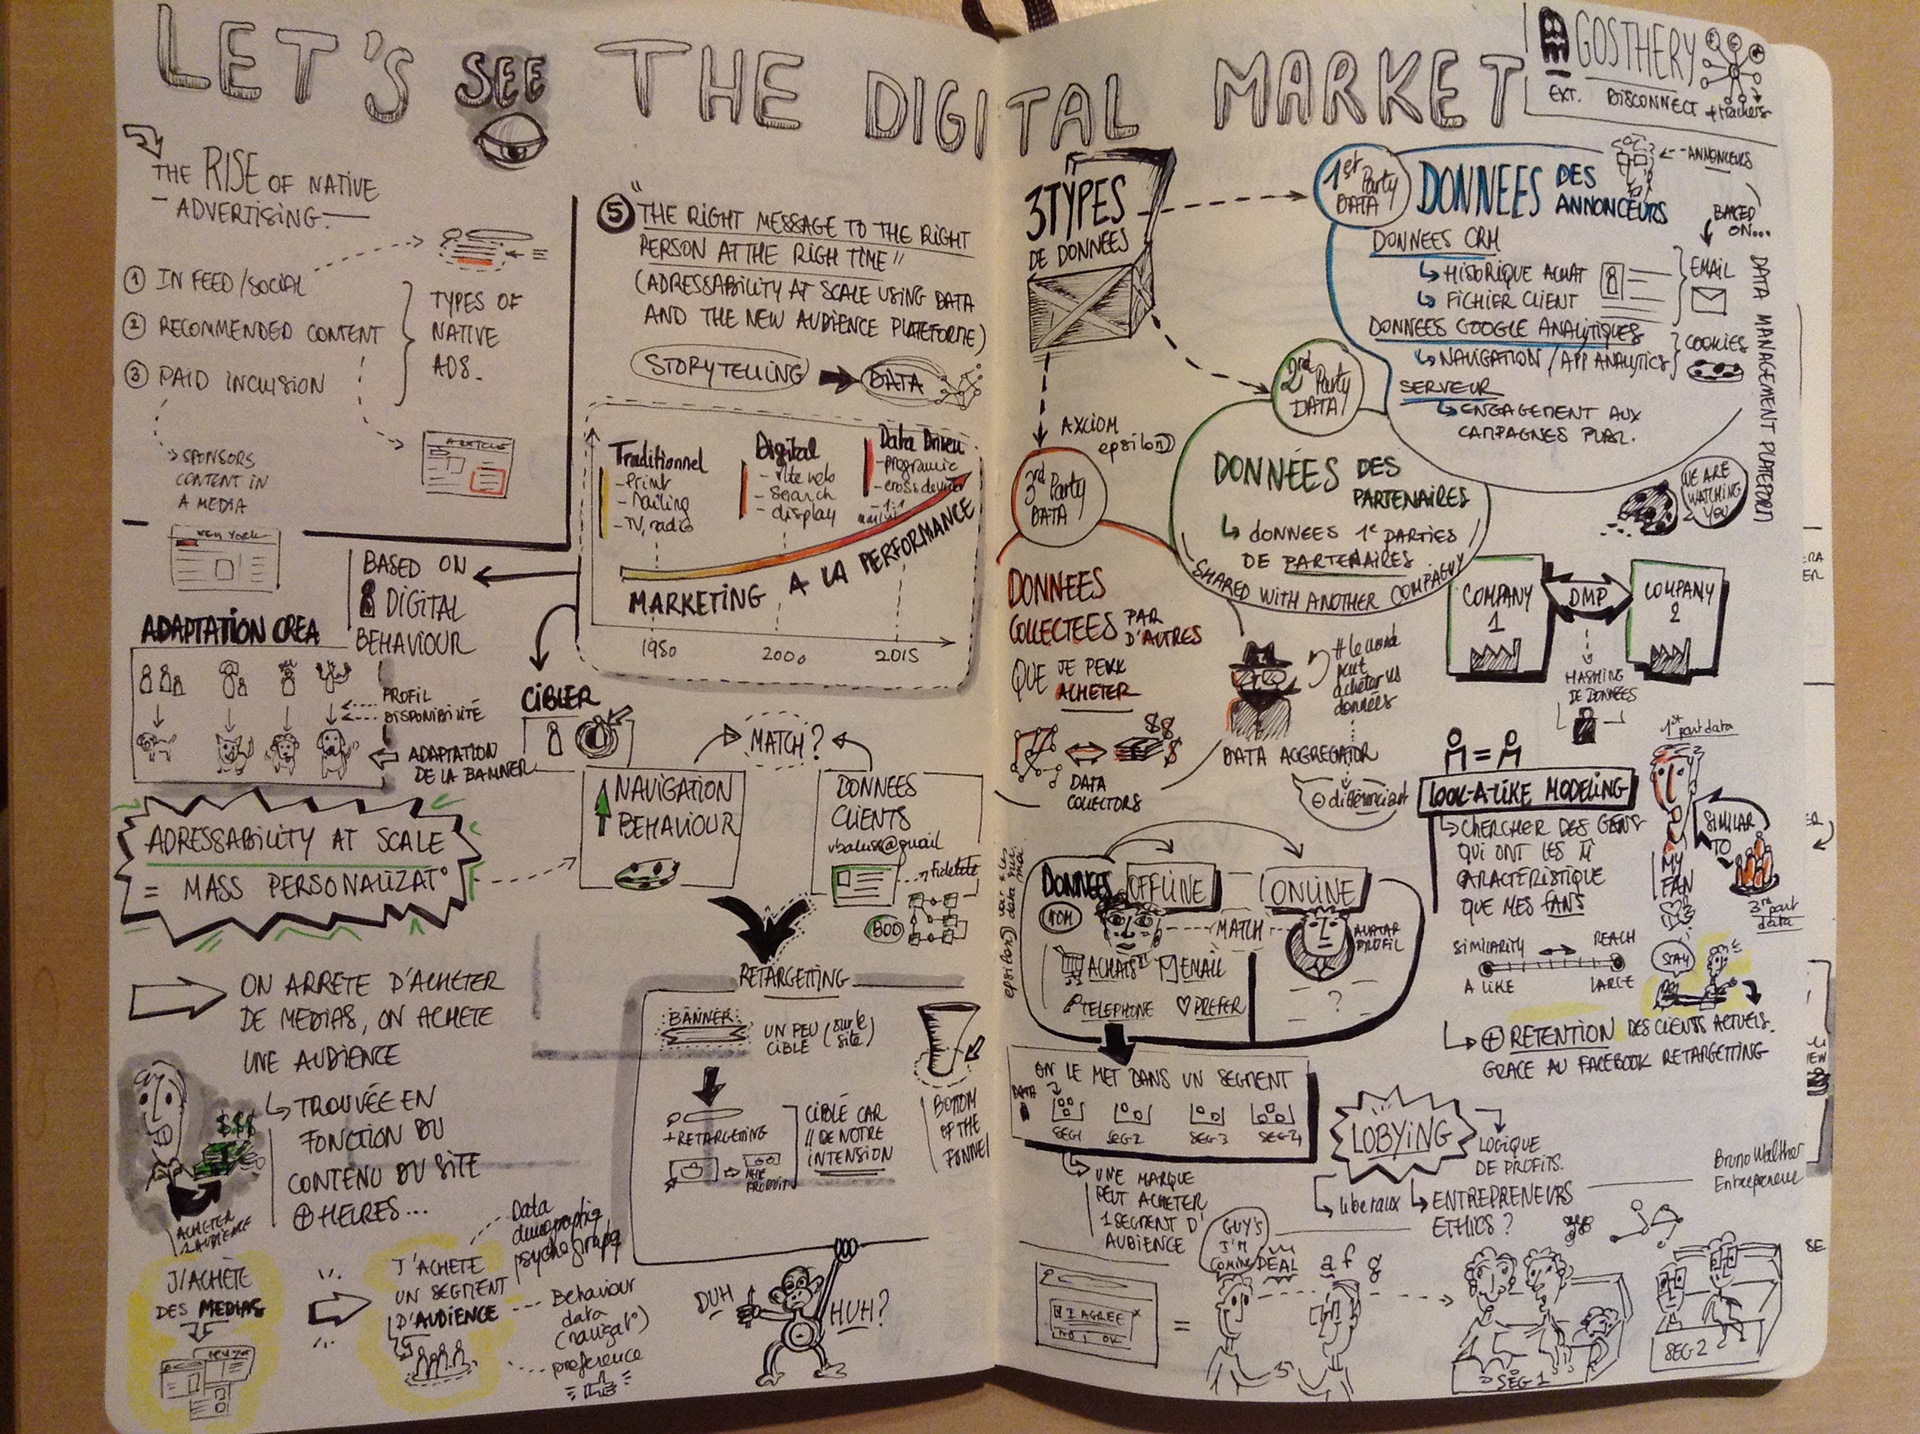 LET'S SEE THE DIGITAL MARKET
GOSTHERY
EXT. DISCONNECT + trackers
THE RISE OF NATIVE
ADVERTISING.
1 IN FEED/SOCIAL
2 RECOMMENDED CONTENT
3 PAID INCLUSION
TYPES OF
NATIVE
ADS.
ARTICLE
SPONSORS
CONTENT IN
A MEDIA
NEW YORK
5 "THE RIGHT MESSAGE TO THE RIGHT
PERSON AT THE RIGH TIME"
(ADRESSABILITY AT SCALE USING DATA
AND THE NEW AUDIENCE PLATEFORME)
STORYTELLING
DATA
Traditionnel
- Print
- Mailing
- TV, radio
Digital
- site web
- Search
- display
Data Driven
- programic
- cross device
- 1:1
MARKETING A LA PERFORMANCE
1980
2000
2015
BASED ON
DIGITAL
BEHAVIOUR
ADAPTATION CREA
PROFIL
DISPONIBILITÉ
ADAPTATION
DE LA BANNER
CIBLER
MATCH?
NAVIGATION
BEHAVIOUR
DONNEES
CLIENTS
fidelité
BDD
ADRESSABILITY AT SCALE
= MASS PERSONALIZAT°
ON ARRETE D'ACHETER
DE MEDIAS, ON ACHETE
UNE AUDIENCE
TROUVÉE EN
FONCTION DU
CONTENU DU SITE
+ HEURES...
$$$
ACHETER
L'AUDIENCE
J'ACHÈTE
DES MEDIAS
J'ACHETE
UN SEGMENT
D'AUDIENCE
Data
demographiq
psychograpq
Behaviour
data
(navigat°)
preference
RETARGETTING
BANNER
UN PEU (sur le
CIBLE site)
+ RETARGETTING
PRODUIT
CIBLÉ CAR
DE NOTRE
INTENSION
BOTTOM
OF THE
FONNEL
DUH
HUH?
3 TYPES
DE DONNÉES
1st Party
DATA
DONNEES DES
ANNONCEURS
ANNONCEURS
BASED
ON...
DONNEES CRM
HISTORIQUE ACHAT
FICHIER CLIENT
EMAIL
DONNEES GOOGLE ANALYTIQUES
NAVIGATION / APP ANALYTICS
COOKIES
SERVEUR
ENGAGEMENT AUX
CAMPAGNES PUBL.
DATA MANAGEMENT PLATEFORM
WE ARE
WATCHING
YOU
2rd Party
DATA
DONNÉES DES
PARTENAIRES
DONNEES 1e PARTIES
DE PARTENAIRES
SHARED WITH ANOTHER COMPAGNY
AXCIOM
epsilon
3rd Party
DATA
DONNEES
COLLECTEES PAR
D'AUTRES
QUE JE PEUX
ACHETER
$$
$
DATA
COLLECTORS
DATA AGGREGATOR
# le monde
peut
acheter vs
données
- différenciant
COMPANY
1
DMP
COMPANY
2
HASHING
DE DONNÉES
LOOK-A-LIKE MODELING
CHERCHER DES GENS
QUI ONT LES
CARACTÉRISTIQUE
QUE MES FANS
SIMILARITY
REACH
A LIKE
LARGE
1st part data
SIMILAR
TO
MY
FAN
3rd part
data
STAY
+ RETENTION DES CLIENTS ACTUELS.
GRACE AU FACEBOOK RETARGETTING
DONNEES OFFLINE
ONLINE
NOM
MATCH
AVATAR
PROFIL
ACHATS
EMAIL
TELEPHONE
PREFER
?
ON LE MET DANS UN SEGMENT
DATA
SEG1
SEG 2
SEG 3
SEG 4
UNE MARQUE
PEUT ACHETER
1 SEGMENT D'
AUDIENCE
LOBYING
LOGIQUE
DE PROFITS.
liberaux
ENTREPRENEURS
ETHICS?
Bruno Walther
Entrepreneur
GUY'S
I'M
COMING
DEAL
a f g
I AGREE
NO OK
=
SEG 1
SEG 2